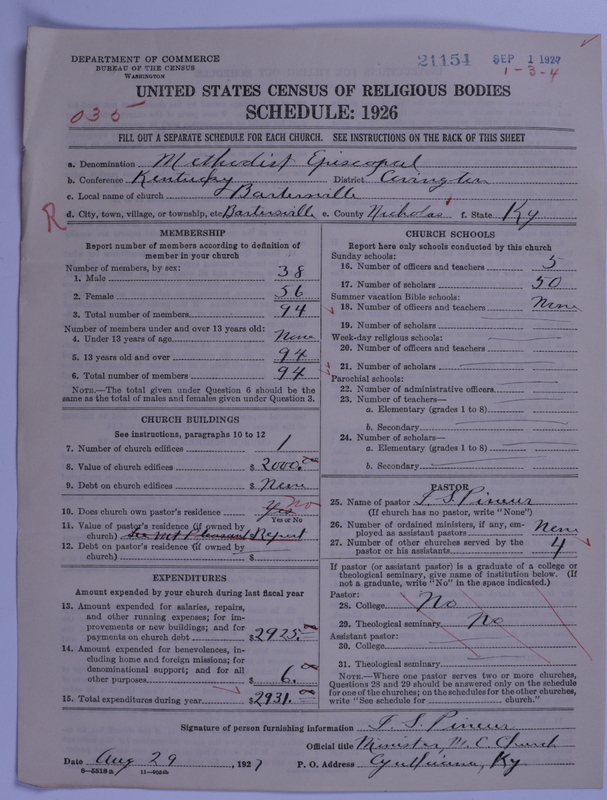 DEPARTMENT OF COMMERCE
BUREAU OF THE CENSUS
WASHINGTON
21154 SEP 1 1927
1-3-4
UNITED STATES CENSUS OF RELIGIOUS BODIES
035
SCHEDULE: 1926
FILL OUT A SEPARATE SCHEDULE FOR EACH CHURCH. SEE INSTRUCTIONS ON THE BACK OF THIS SHEET
a. Denomination Methodist Episcopal
b. Conference Kentucky District Covington
c. Local name of church Bartersville
R d. City, town, village, or township, etc Bartersville e. County Nicholas f. State Ky
MEMBERSHIP
Report number of members according to definition of
member in your church
Number of members, by sex:
1. Male 38
2. Female 56
3. Total number of members 94
Number of members under and over 13 years old:
4. Under 13 years of age None
5. 13 years old and over 94
6. Total number of members 94
NOTE.—The total given under Question 6 should be the
same as the total of males and females given under Question 3.
CHURCH BUILDINGS
See instructions, paragraphs 10 to 12
7. Number of church edifices 1
8. Value of church edifices $ 2000.00
9. Debt on church edifices $ None
10. Does church own pastor's residence Yes No
Yes or No
11. Value of pastor's residence (if owned by
church) See Mt Pleasant Report
12. Debt on pastor's residence (if owned by
church) $
EXPENDITURES
Amount expended by your church during last fiscal year
13. Amount expended for salaries, repairs,
and other running expenses; for im-
provements or new buildings; and for
payments on church debt $2925.00
14. Amount expended for benevolences, in-
cluding home and foreign missions; for
denominational support; and for all
other purposes $ 6.00
15. Total expenditures during year $2931.00
CHURCH SCHOOLS
Report here only schools conducted by this church
Sunday schools:
16. Number of officers and teachers 5
17. Number of scholars 50
Summer vacation Bible schools:
18. Number of officers and teachers None
19. Number of scholars
Week-day religious schools:
20. Number of officers and teachers
21. Number of scholars
Parochial schools:
22. Number of administrative officers
23. Number of teachers—
a. Elementary (grades 1 to 8)
b. Secondary
24. Number of scholars—
a. Elementary (grades 1 to 8)
b. Secondary
PASTOR
25. Name of pastor I. S. Pineur
(If church has no pastor, write "None")
26. Number of ordained ministers, if any, em-
ployed as assistant pastors None
27. Number of other churches served by the
pastor or his assistants 4
If pastor (or assistant pastor) is a graduate of a college or
theological seminary, give name of institution below. (If
not a graduate, write "No" in the space indicated.)
Pastor:
28. College No
29. Theological seminary No
Assistant pastor:
30. College
31. Theological seminary
NOTE.—Where one pastor serves two or more churches,
Questions 28 and 29 should be answered only on the schedule
for one of the churches; on the schedules for the other churches,
write "See schedule for church."
Signature of person furnishing information I. S. Pineur
Official title Minister, M. E. Church
Date Aug 29, 1927 P. O. Address Cynthiana, Ky
8-5518a 11-9084b